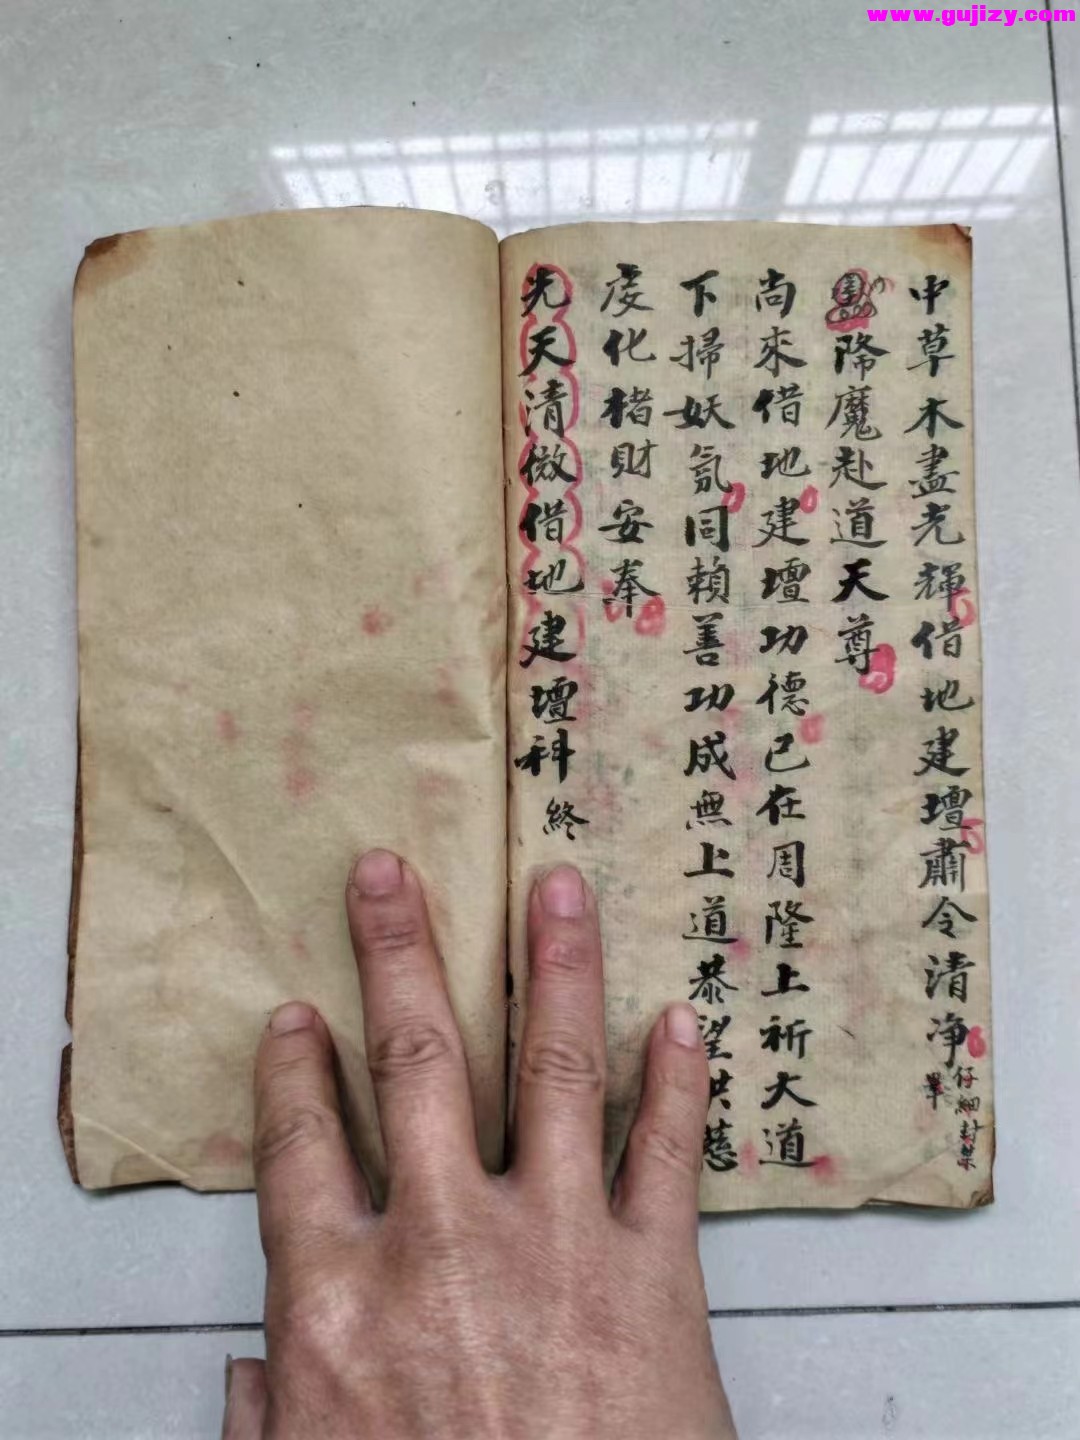 www.gujizy.com
中草木盡光輝借地建壇肅令清净
仔細封禁
畢
降魔赴道天尊
尚來借地建壇功德已在周隆上祈大道
下掃妖氛同賴善功成無上道恭望洪慈
虔化楮財安奉
先天清微借地建壇科
終